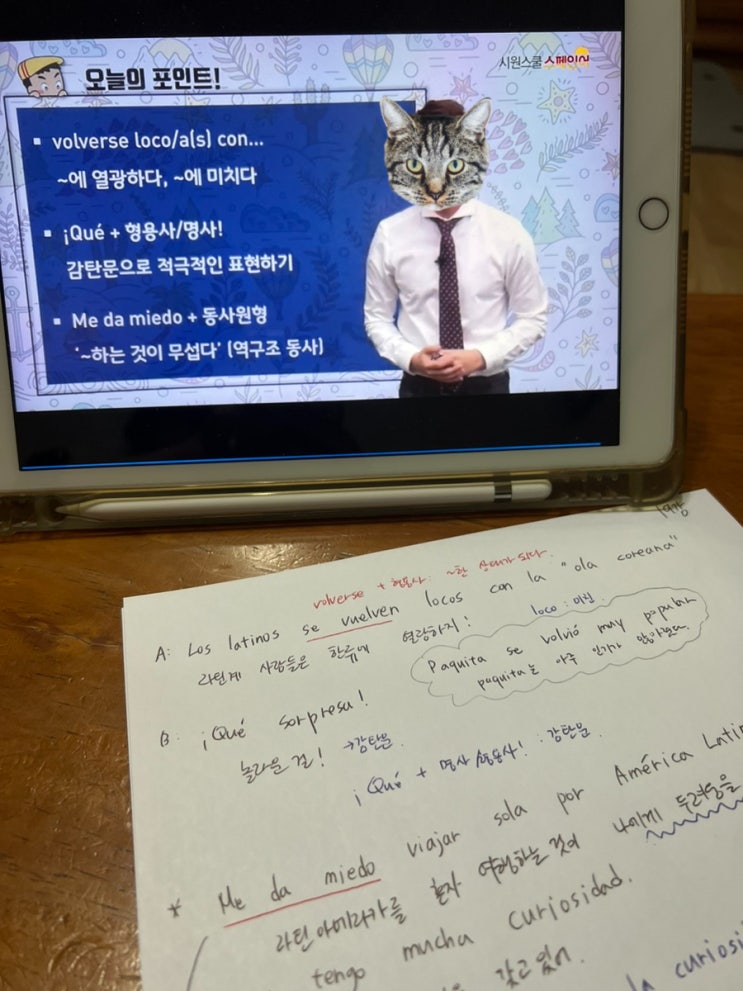 오늘의 포인트!
시원스쿨 스페인어
volverse loco/a(s) con...
~에 열광하다, ~에 미치다
¡Qué + 형용사/명사!
감탄문으로 적극적인 표현하기
Me da miedo + 동사원형
'~하는 것이 무섭다' (역구조 동사)
volverse + 형용사: ~한 상태가 되다.
A: Los latinos se vuelven locos con la "ola coreana"
라틴계 사람들은 한류에 열광하지!
loco: 미친
Paquita se volvió muy popular
paquita는 아주 인기가 많아졌다.
B: ¡Qué sorpresa!
놀라운 걸! →감탄문
¡Qué + 명사/형용사! : 감탄문
* Me da miedo viajar sola por América Latin
라틴아메리카를 혼자 여행하는 것이 나에게 두려움을
tengo mucha curiosidad.
갖고 있어.
la curiosi